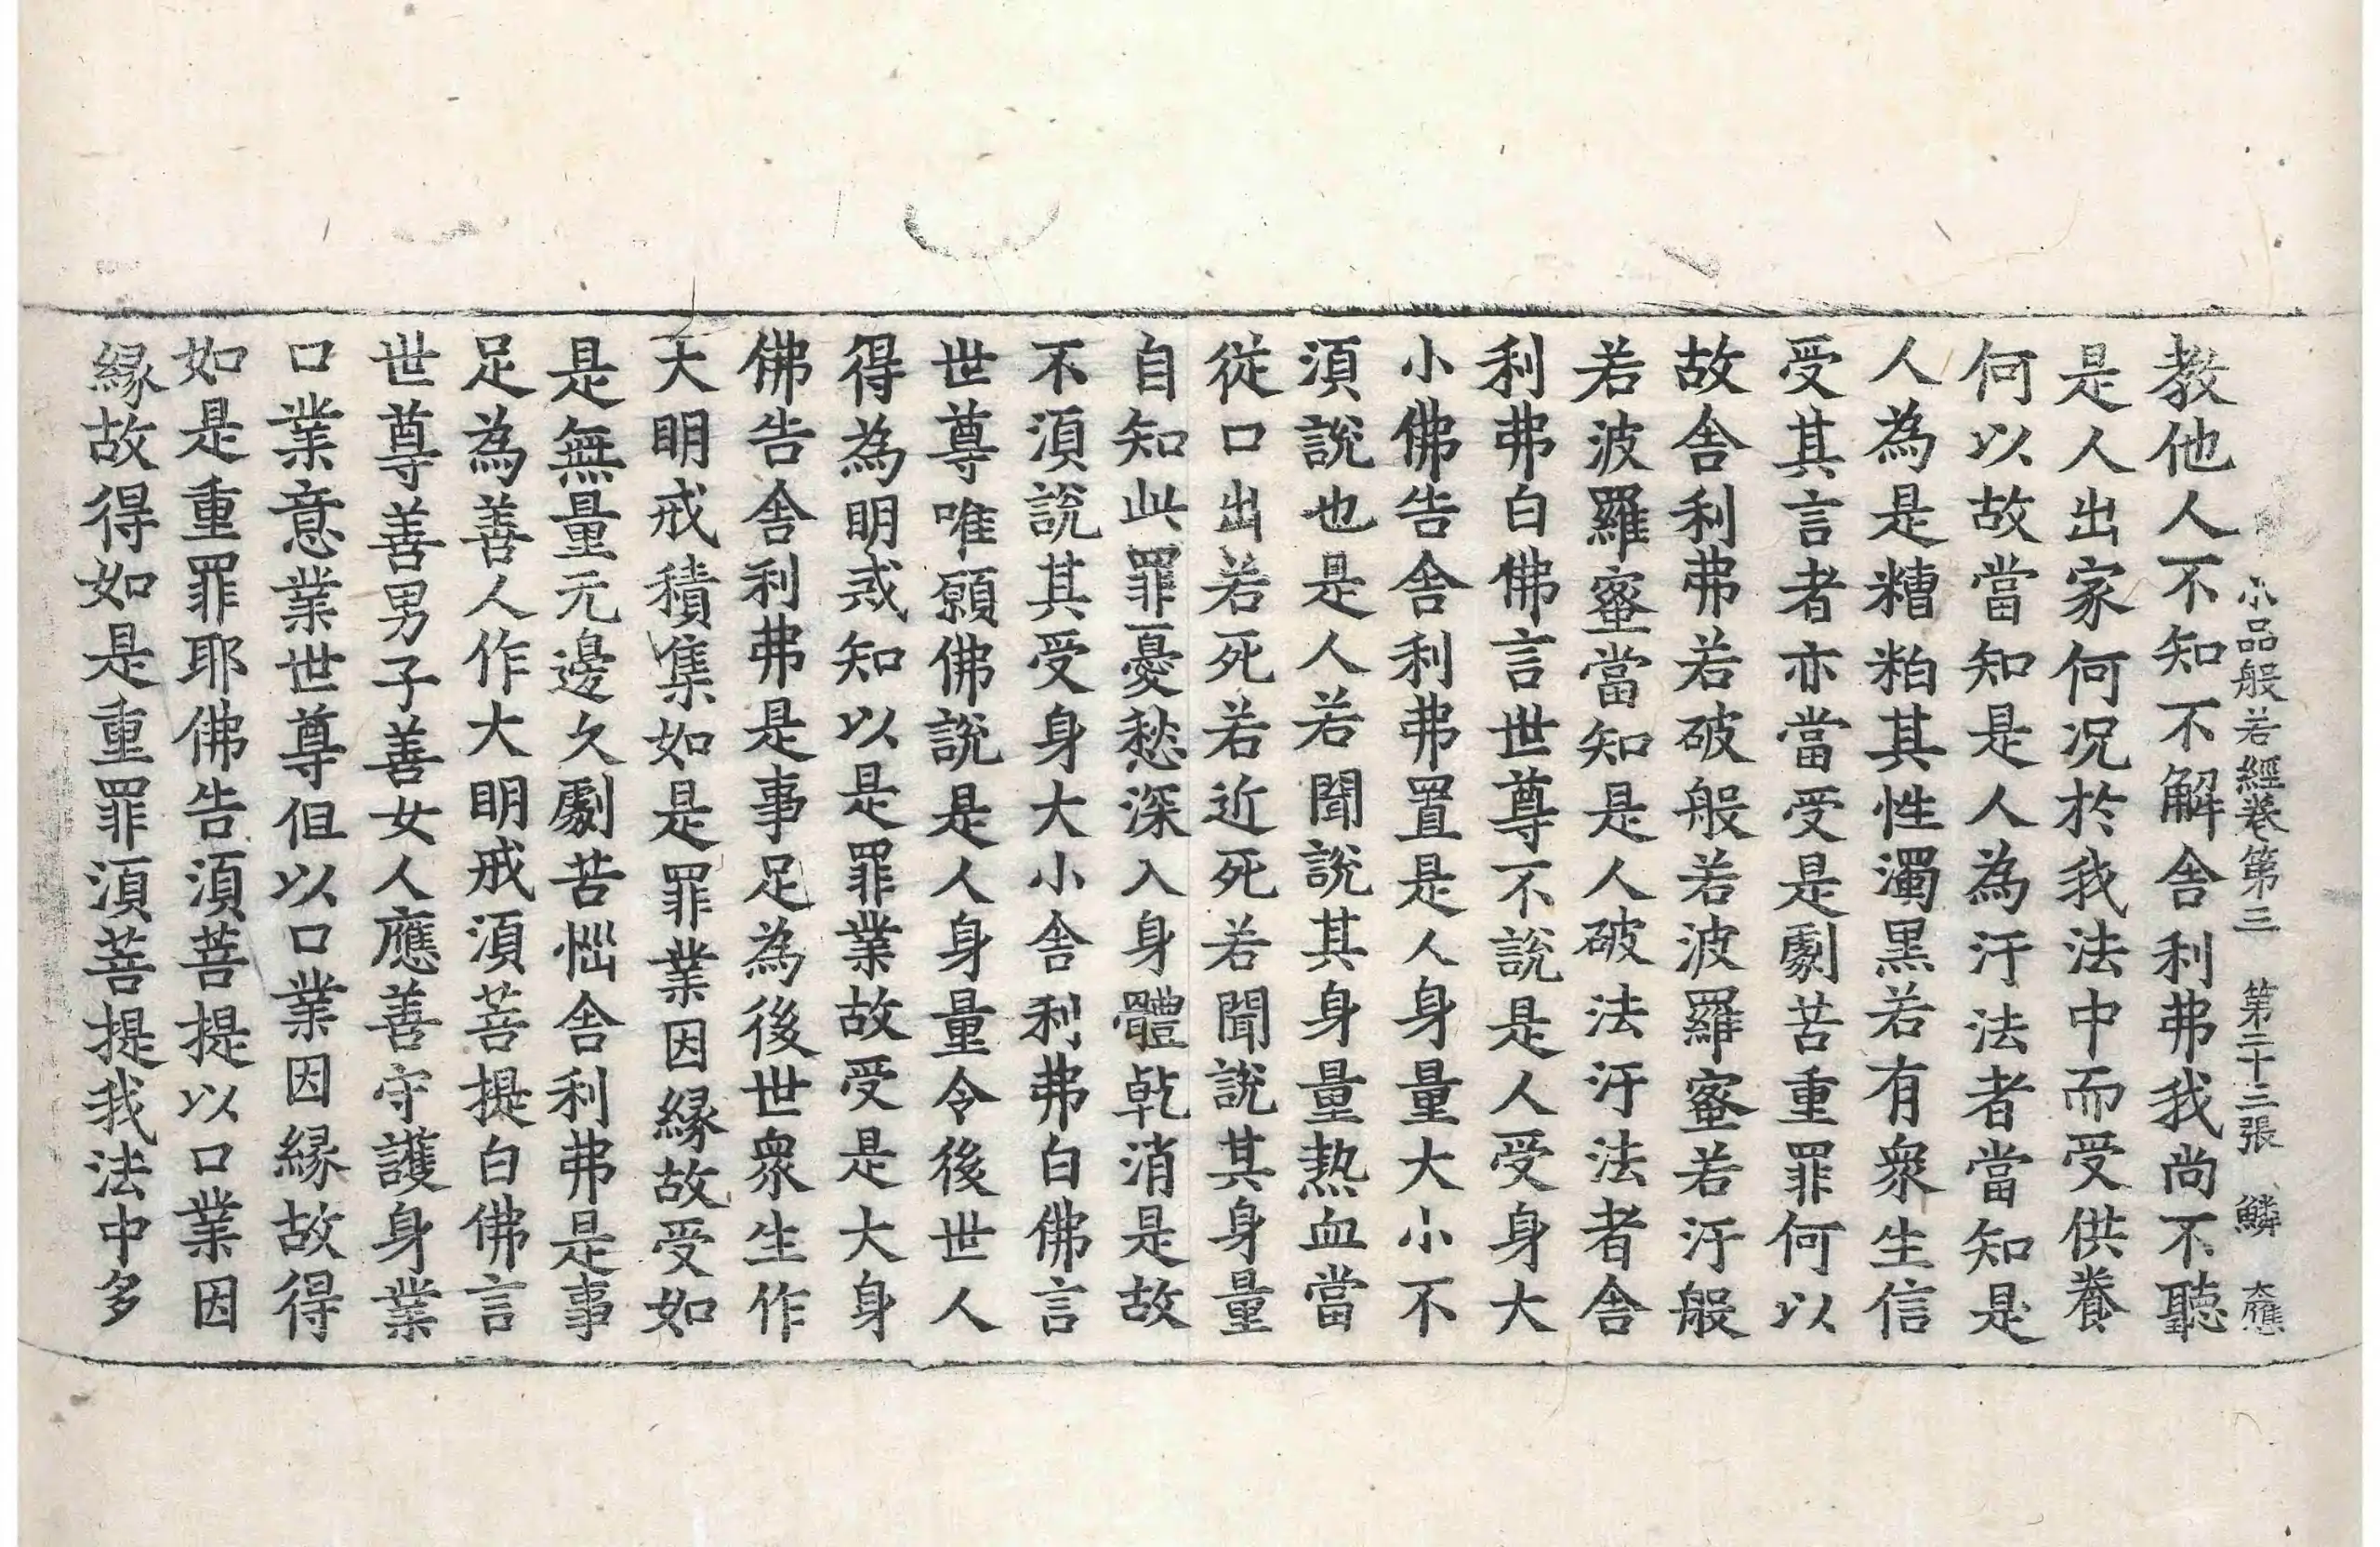 小品般若經卷第三 第二十三張 鱗 大應
教他人不知不解舍利弗我尚不聽
是人出家何况於我法中而受供養
何以故當知是人為汙法者當知是
人為是糟粕其性濁黒若有衆生信
受其言者亦當受是劇苦重罪何以
故舍利弗若破般若波羅蜜若汙般
若波羅蜜當知是人破法汙法者舍
利弗白佛言世尊不說是人受身大
小佛告舍利弗置是人身量大小不
湏說也是人若聞說其身量熱血當
從口出若死若近死若聞說其身量
自知此罪憂愁深入身體乾消是故
不湏說其受身大小舍利弗白佛言
世尊唯願佛說是人身量令後世人
得為明戒知以是罪業故受是大身
佛告舍利弗是事足為後世衆生作
大明戒積集如是罪業因縁故受如
是無量无邊久劇苦惱舍利弗是事
足為善人作大明戒湏菩提白佛言
世尊善男子善女人應善守護身業
口業意業世尊但以口業因縁故得
如是重罪耶佛告湏菩提以口業因
縁故得如是重罪湏菩提我法中多